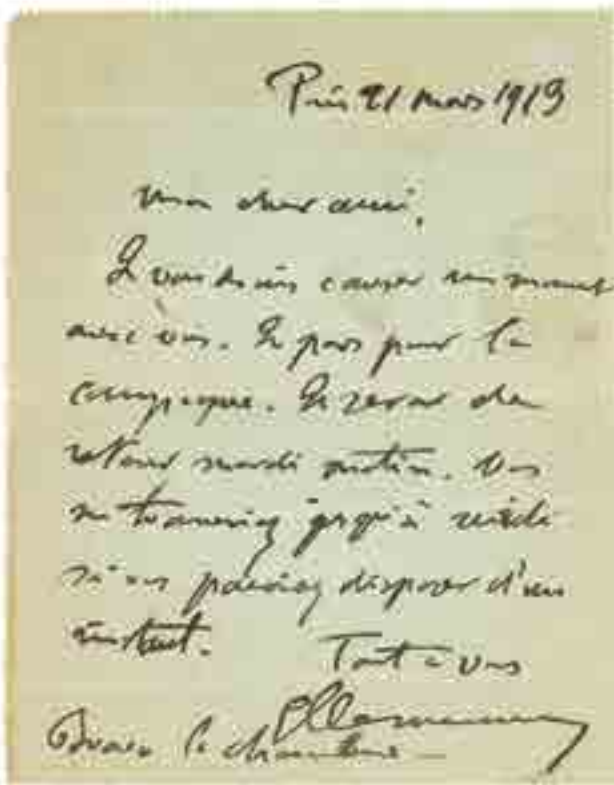 Paris 21 mars 1913
Mon cher ami,
Je voudrais causer un moment
avec vous. Je pars pour la
campagne. Je serai de
retour mardi matin. Vous
me trouveriez jusqu'à midi
si vous pouviez disposer d'un
instant.
Tout à vous
GClemenceau
la chambre